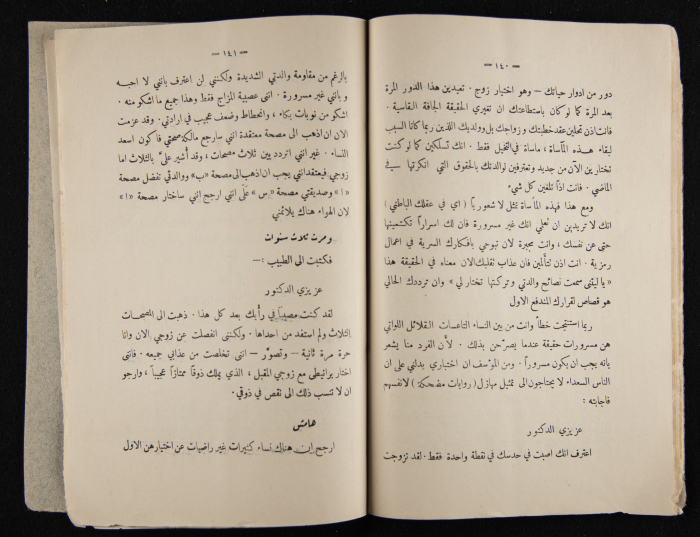 — ١٤٠ —
دور من ادوار حياتك – وهو اختيار زوج . تعيدين هذا الدور المرة
بعد المرة كما لو كان باستطاعتك ان تغيري الحقيقة الجافة القاسية .
فانت اذن تحلين عقد خطبتك وزواجك بل وولديك اللذين ربما كانا السبب
لبقاء هذه المأساة ، مأساة في التخيل فقط . انك تسلكين كما لو كنت
تختارين الآن من جديد وتعترفين لوالدتك بالحقوق التي انكرتها في
الماضي . فانت اذاً تلغين كل شيء
ومع هذا فهذه المأساة تمثل لا شعورياً ( اي في عقلك الباطني )
انك لا تريدين ان تعلي انك غير مسرورة فان لك اسراراً تكتمينها
حتى عن نفسك ، وانت مجبرة لان تبوحي بافكارك السرية في اعمال
رمزية . انت اذن تتألمين فان عذاب تقلبك الان معناه في الحقيقة هذا
« يا ليتني سمعت نصائح والدتي وتركتها تختار لي » وان ترددك الحالي
هو قصاص لقرارك المندفع الاول
ربما استنتجت خطأ وانت من بين النساء التاعسات القلائل اللواتي
هن مسرورات حقيقة عندما يصرّحن بذلك . لأن الفرد منا يشعر
بانه يجب ان يكون مسروراً . ومن المؤسف ان اختباري يدلني على ان
الناس السعداء لا يحتاجون الى تمثيل مهازل ( روايات مضحكة ) لانفسهم
فاجابته :
عزيزي الدكتور
اعترف انك اصبت في حدسك في نقطة واحدة فقط . لقد تزوجت
— ١٤١ —
بالرغم من مقاومة والدتي الشديدة ولكنني لن اعترف بانني لا احبه
وبانني غير مسرورة . انني عصبية المزاج فقط وهذا جميع ما اشكو منه .
اشكو من نوبات بكاء ، وانحطاط وضعف عجيب في ارادتي . وقد عزمت
الان ان اذهب الى مصحة معتقدة انني سارجع مالكة صحتي فاكون اسعد
النساء . غير انني اتردد بين ثلاث مصحات ، وقد أشير عليّ بالثلاث اما
زوجي فيعتقد انني يجب ان اذهب الى مصحة «ب» ووالدتي تفضل مصحة
« ا » وصديقتي مصحة «س » عَلَى انني ارجح انني ساختار مصحة «ا»
لان الهواء هناك يلائمني
ومرت ثلاث سنوات
فكتبت الى الطبيب :—
عزيزي الدكتور
لقد كنت مصيباً في رأيك بعد كل هذا . ذهبت الى المصحات
الثلاث ولم استفد من احداها . ولكنني انفصلت عن زوجي الان وانا
حرة مرة ثانية – وتصوّر – انني تخلصت من عذابي جميعه . فانني
اختار برانيطي مع زوجي المقبل ، الذي يملك ذوقاً ممتازاً عجيباً ، وارجو
ان لا تنسب ذلك الى نقص في ذوقي .
هامش
ارجح ان هناك نساء كثيرات غير راضيات عن اختيارهن الاول